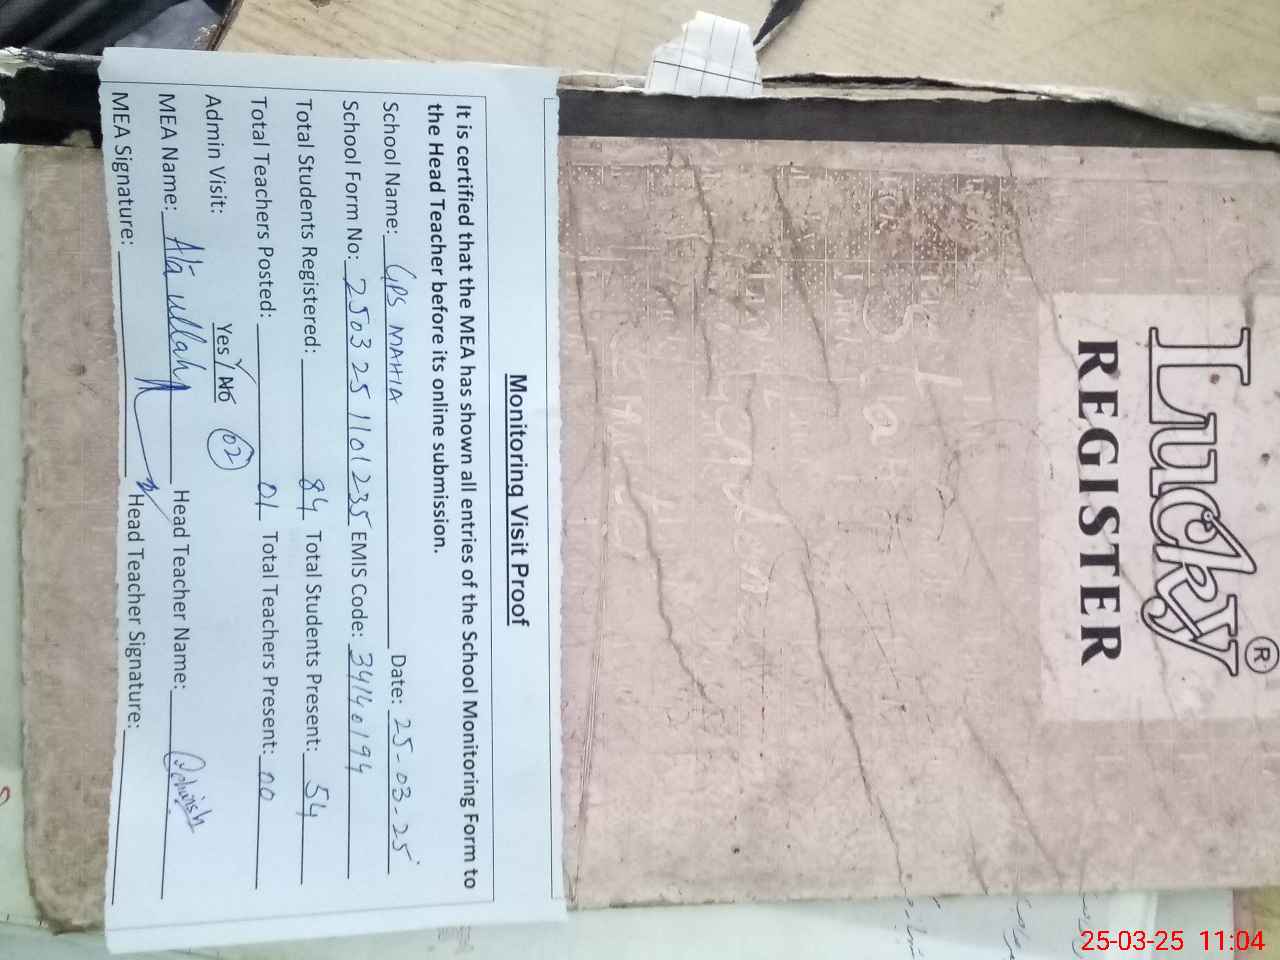 Lucky®
REGISTER
Monitoring Visit Proof
It is certified that the MEA has shown all entries of the School Monitoring Form to
the Head Teacher before its online submission.
School Name: GPS MAHIA Date: 25-03-25
School Form No: 2503251101235 EMIS Code: 34140194
Total Students Registered: 84 Total Students Present: 54
Total Teachers Posted: 01 Total Teachers Present: 00
Admin Visit: Yes / No 02
MEA Name: Ata ullah Head Teacher Name:
MEA Signature: Head Teacher Signature:
25-03-25 11:04